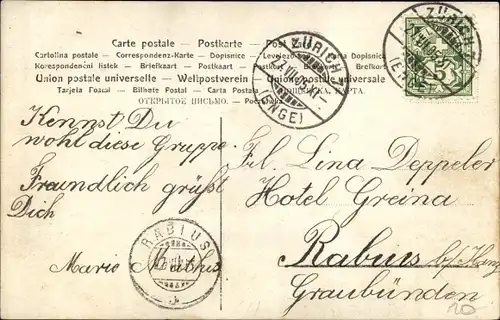 Carte postale — Postkarte — Post
Cartolina postale — Correspondenz-Karte — Dopisnice — Levelező Cartolina Dopisnica
Korespondenční listek — Briefkaart — Postkaart — Brefkort
Union postale universelle — Weltpostverein — Unione postale universale
Tarjeta Postal — Bilhete Postal — Carta Postala КАРТА
ОТКРЫТОЕ ПИСЬМО.
ZÜRICH
(ENGE)
ZÜRICH
5
Kennst Du
wohl diese Gruppe
Freundlich grüßt
Dich
Mario Mathis
RABIUS
Frl. Lina Deppeler
Hotel Greina
Rabius b/ Ilanz
Graubünden